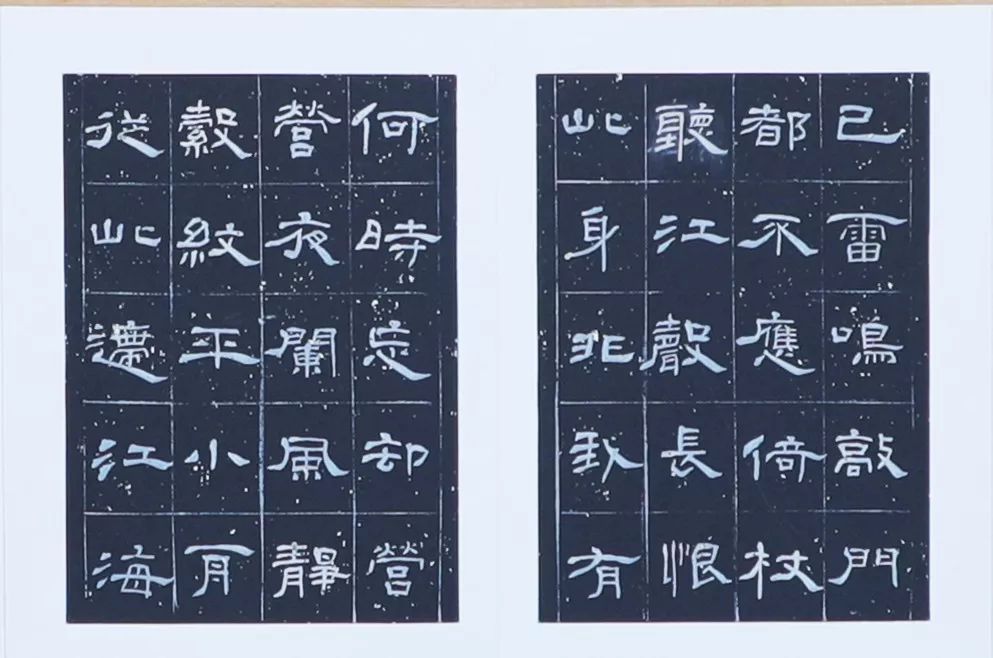 已雷鳴敲門
都不應倚杖
聽江聲長恨
此身非我有
何時忘却營
營夜闌風靜
縠紋平小舟
從此遰江海